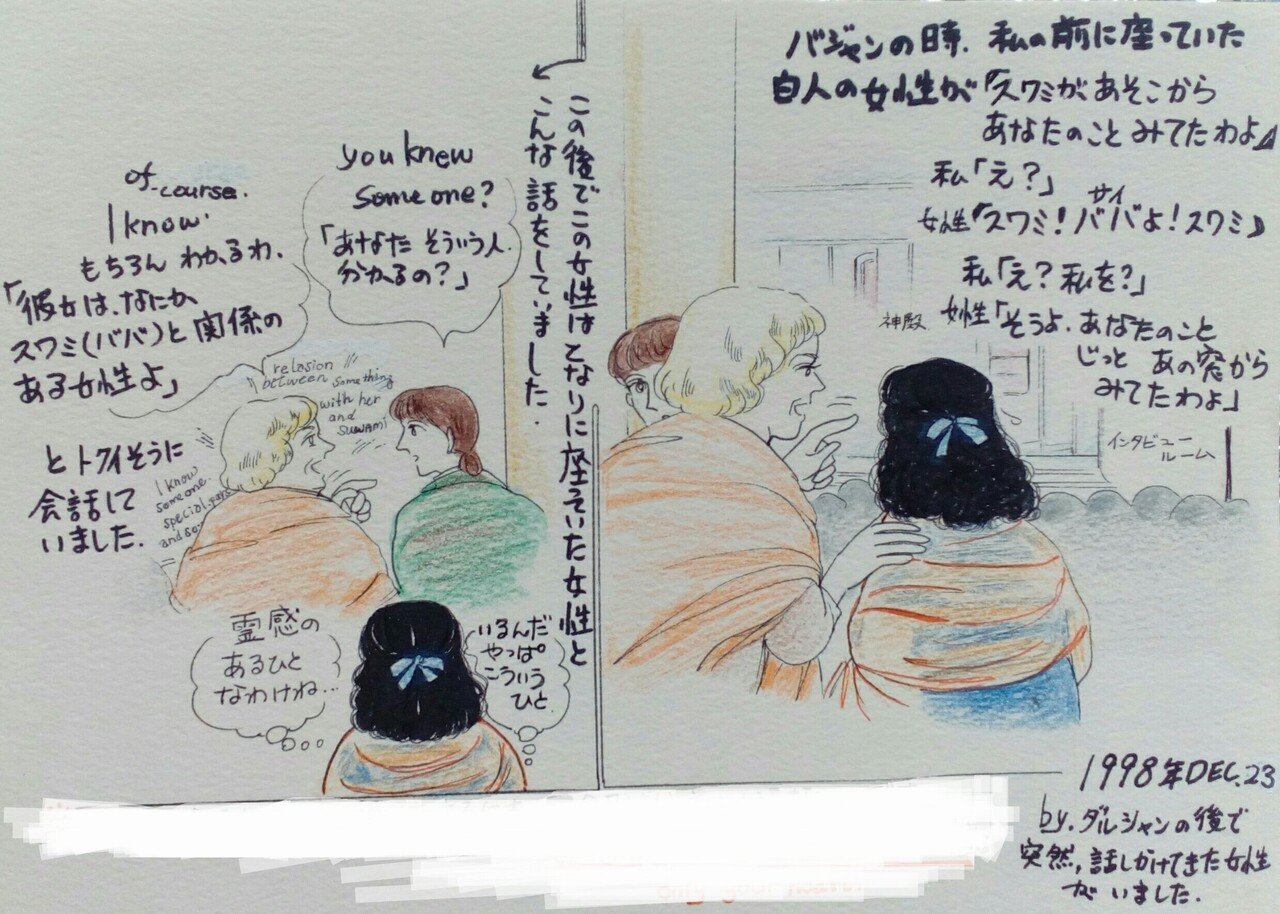 バジャンの時、私の前に座っていた
白人の女性が「スワミがあそこから
あなたのこと みてたわよ」
私「え？」
サイ
女性「スワミ！ババよ！スワミ」
私「え？私を？」
女性「そうよ、あなたのこと
じっと あの窓から
みてたわよ」
神殿
インタビュー
ルーム
この後でこの女性はとなりに座っていた女性と
こんな話をしていました.
you knew
some one?
「あなた そういう人.
分かるの？」
of course.
I know.
もちろん わかるわ.
「彼女は、なにか
スワミ(ババ)と関係の
ある女性よ」
relasion
between something
with her
and
suwami
I know
someone
special.
and so
と トクイそうに
会話して
いました.
霊感の
あるひと
なわけね...
いるんだ
やっぱ
こういう
ひと.
1998年DEC.23
by. ダルシャンの後で
突然, 話しかけてきた女性
がいました.